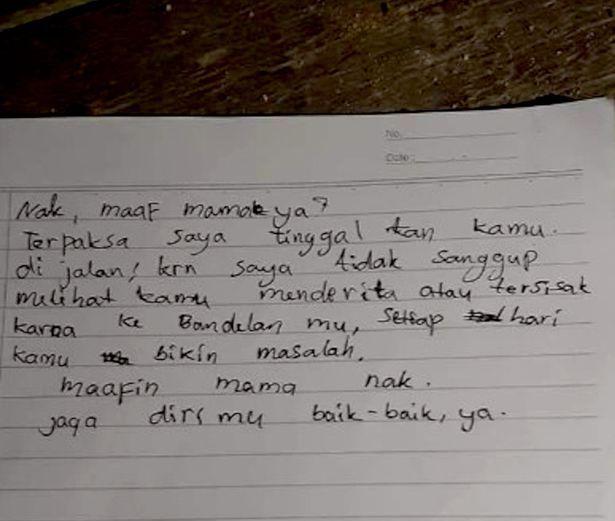 No.
Date:
Nak, maaf mamak ya?
Terpaksa saya tinggal kan kamu.
di jalan, krn saya tidak sanggup
melihat kamu menderita atau tersisak
karna ke Bandelan mu, setiap hari
kamu bikin masalah.
maafin mama nak.
jaga diri mu baik-baik, ya.